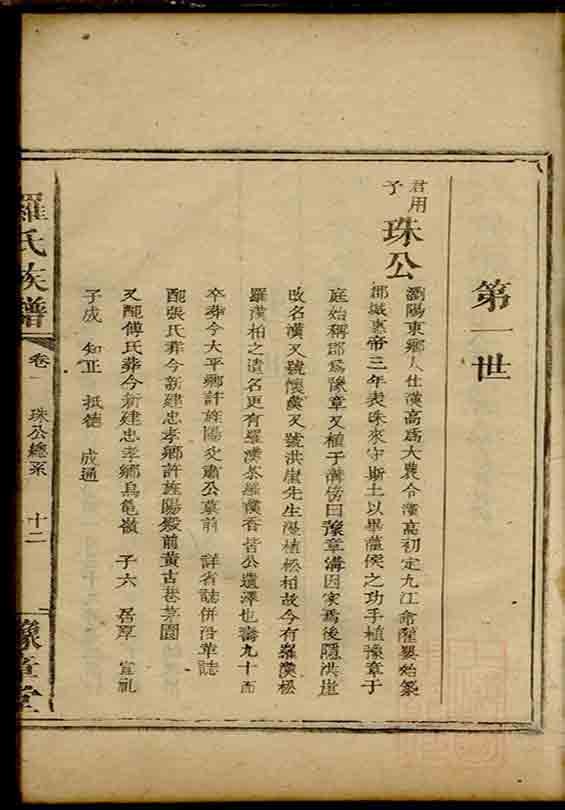 第一世
君用
予
珠公
瀏陽東鄉人仕漢高為大農令漢高初定九江命薩嬰始築
郡城惠帝三年表珠來守斯土以畢薀侯之功手植豫章于
庭始稱郡為豫章又植于溝傍曰豫章溝因家焉後隱洪崖
改名漢又號懷漢又號洪崖先生隱植松柏故今有羅漢松
羅漢柏之遺名更有羅漢茶羅漢香皆公遺澤也壽九十而
卒葬今大平鄉許旌陽丈肅公墓前 詳省誌併沿革誌
配張氏葬今新建忠孝鄉許旌陽殿前黃古巷茅園
又配傅氏葬今新建忠孝鄉烏龜嶺 子六 居厚 宣礼
子成 知正 抵德 成通
羅氏族譜
卷一
珠公總系
十二
豫章堂